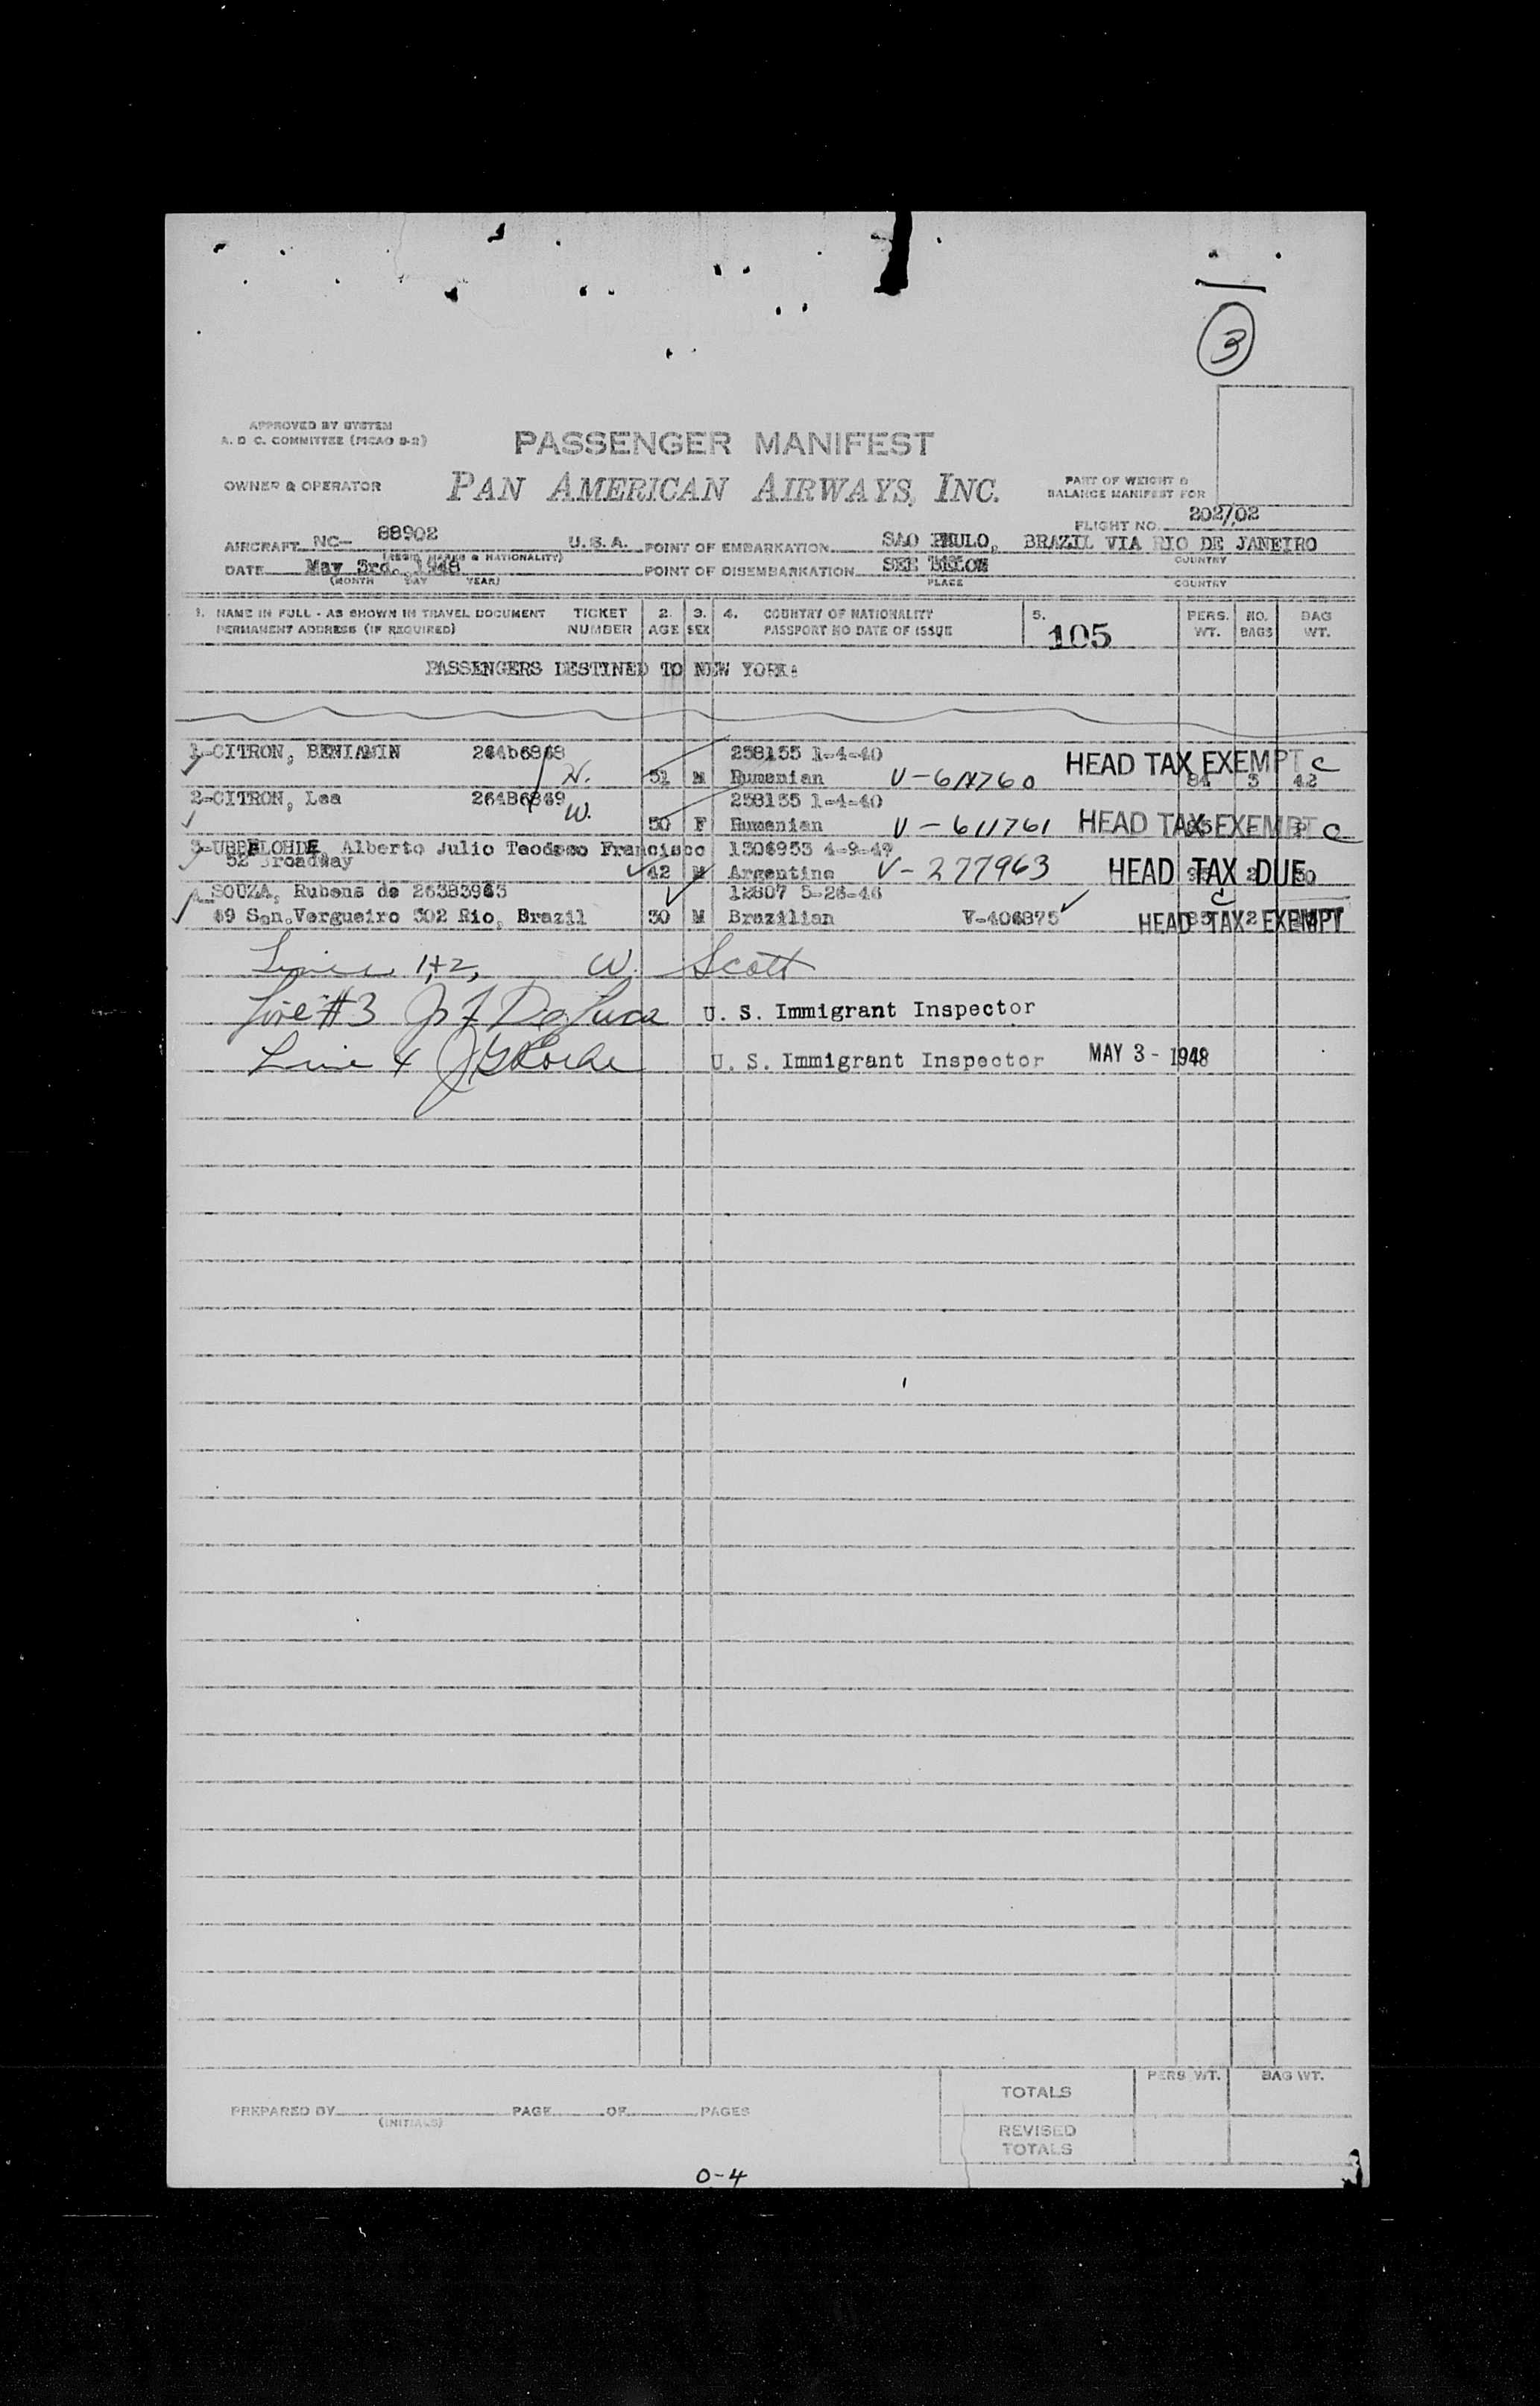 3
APPROVED BY SYSTEM
A. D C. COMMITTEE (PICAO 9-2)
PASSENGER MANIFEST
OWNER & OPERATOR PAN AMERICAN AIRWAYS, INC.
PART OF WEIGHT &
BALANCE MANIFEST FOR
FLIGHT NO. 202/02
AIRCRAFT NC- 88902 U.S.A. POINT OF EMBARKATION SAO PAULO, BRAZIL VIA RIO DE JANEIRO
(REGIS. MARKS & NATIONALITY) COUNTRY
DATE May 3rd. 1948 POINT OF DISEMBARKATION SEE BELOW
(MONTH DAY YEAR) PLACE COUNTRY
1. NAME IN FULL - AS SHOWN IN TRAVEL DOCUMENT TICKET 2. 3. 4. COUNTRY OF NATIONALITY 5. PERS. NO. BAG
PERMANENT ADDRESS (IF REQUIRED) NUMBER AGE SEX PASSPORT NO DATE OF ISSUE 105 WT. BAGS WT.
PASSENGERS DESTINED TO NEW YORK:
1-CITRON, BENIAMIN 258155 1-4-40 HEAD TAX EXEMPT C
51 M Rumanian 84 3 42
2-CITRON, Lea 264B6849 258155 1-4-40
W. 50 F Rumanian V-611761 HEAD TAX EXEMPT C
3-UBBELOHDE, Alberto Julio Teodoro Francisco
52 Broadway 42 M Argentine V-277963 HEAD TAX DUE
SOUZA, Rubens de 12807 5-26-46 C
49 Sen.Vergueiro 502 Rio, Brazil 30 M Brazilian V-406875 HEAD TAX EXEMPT
Lines 1+2, W. Scott
Line #3 J. F. DeLuca U. S. Immigrant Inspector
Line 4 U. S. Immigrant Inspector MAY 3 - 1948
PERS WT. BAG WT.
TOTALS
PREPARED BY PAGE OF PAGES
(INITIALS)
REVISED
TOTALS
0-4